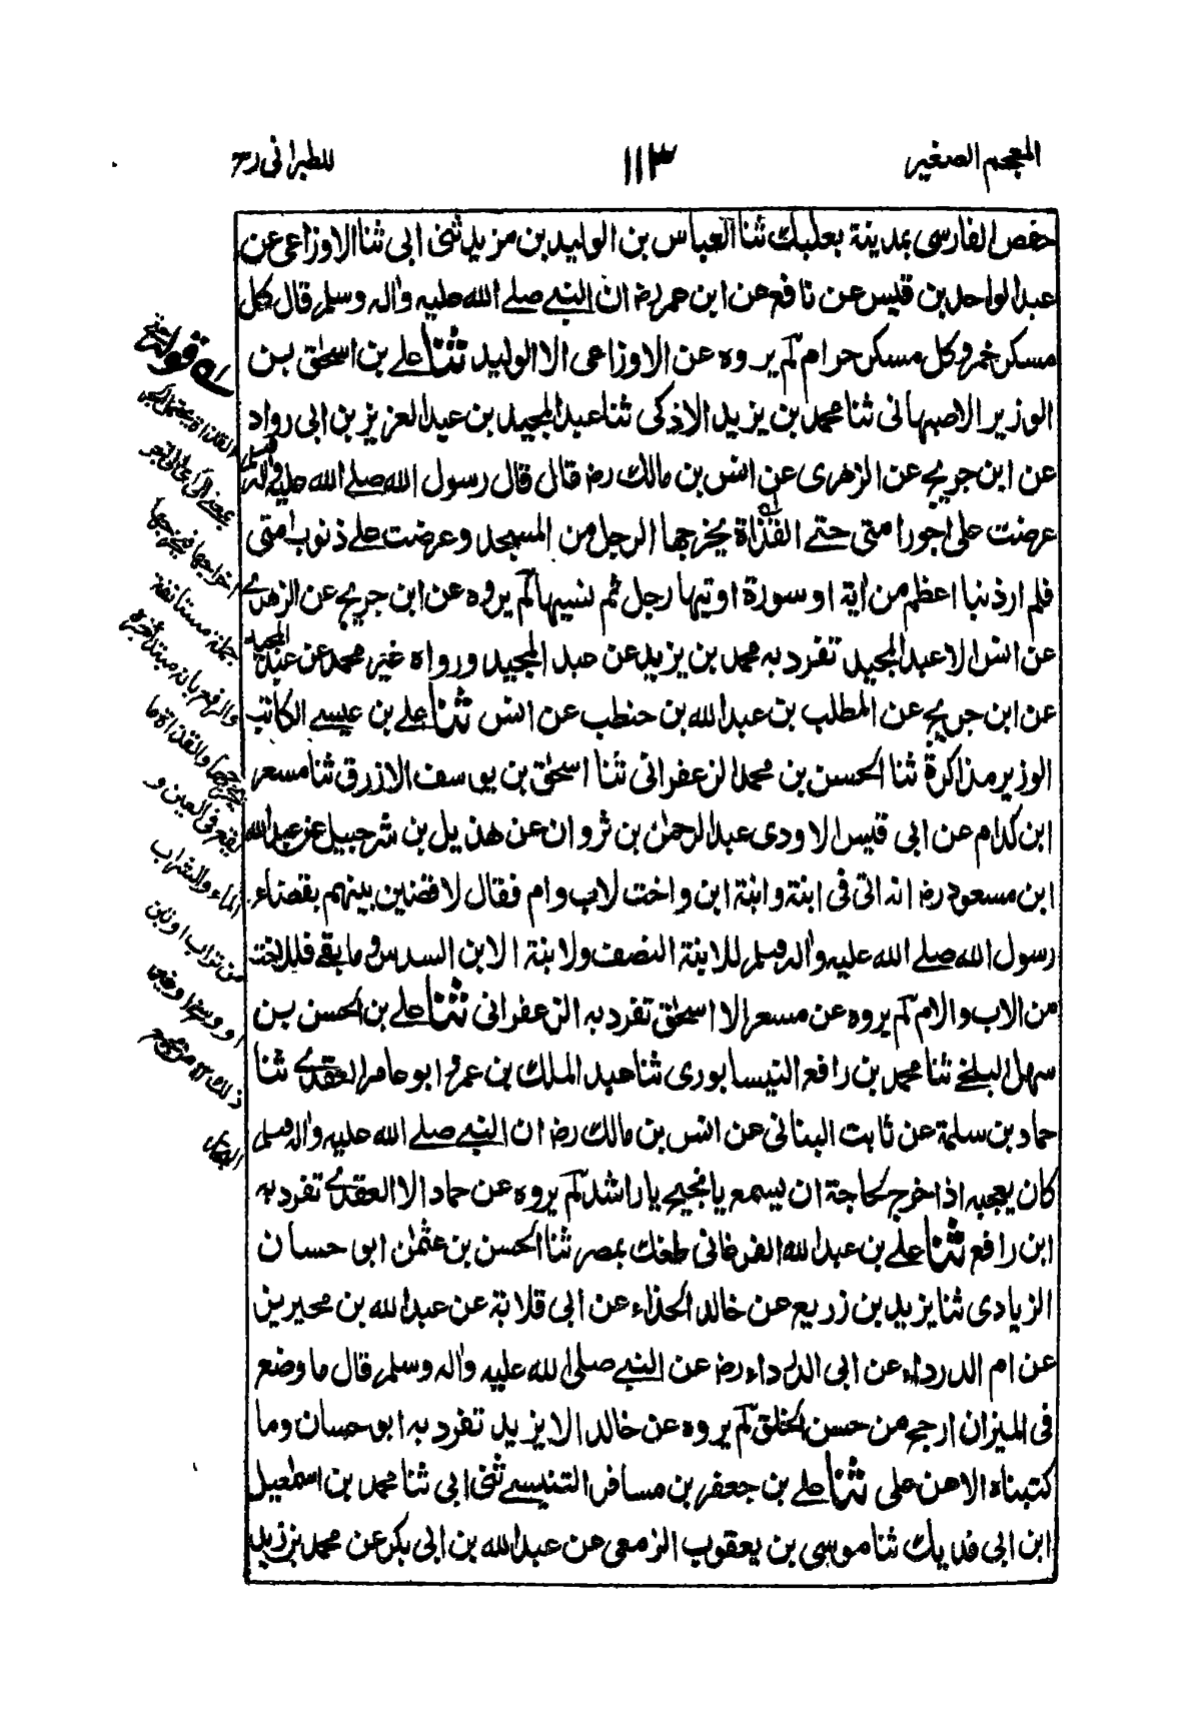 المعجم الصغير
١١٣
للطبرانی رح
حفص الفارسی بمدینة بعلبك ثنا العباس بن الولید بن مزید ثنی ابی ثنا الاوزاعی عن
عبد الواحد بن قیس عن نافع عن ابن عمر رضـ ان النبی صلے الله علیه واٰله وسلم قال کل
مسکر خمر وکل مسکر حرام لم یروه عن الاوزاعی الا الولید ثنا علے بن اسحٰق بن
الوزیر الاصبهانی ثنا محمد بن یزید الاذکی ثنا عبد المجید بن عبد العزیز بن ابی رواد
عن ابن جریج عن الزهری عن انس بن مالك رضـ قال قال رسول الله صلے الله علیه واٰله وسلم
عرضت علی اجور امتی حتے القذاة یخرجها الرجل من المسجد وعرضت علے ذنوب امتی
فلم ار ذنبا اعظم من اٰیة او سورة اوتیها رجل ثم نسیها لم یروه عن ابن جریج عن الزهری
عن انس الا عبد المجید تفرد به محمد بن یزید عن عبد المجید ورواه غیر محمد عن عبد المجید
عن ابن جریج عن المطلب بن عبد الله بن حنطب عن انس ثنا علے بن عیسے الکاتب
الوزیر مذاکرة ثنا الحسن بن محمد الزعفرانی ثنا اسحٰق بن یوسف الازرق ثنا مسعر
ابن کدام عن ابی قیس الاودی عبد الرحمٰن بن ثروان عن هذیل بن شرحبیل عن عبد الله
ابن مسعود رضـ انه اتی فی ابنة وابنة ابن واخت لاب وام فقال لاقضین بینهم بقضاء
رسول الله صلے الله علیه واٰله وسلم للابنة النصف ولابنة الابن السدس وما بقے فللاخت
من الاب والام لم یروه عن مسعر الا اسحٰق تفرد به الزعفرانی ثنا علے بن الحسن بن
سهل البلخے ثنا محمد بن رافع النیسابوری ثنا عبد الملك بن عمرو ابو عامر العقدی ثنا
حماد بن سلمة عن ثابت البنانی عن انس بن مالك رضـ ان النبی صلے الله علیه واٰله وسلم
کان یعجبه اذا خرج لحاجة ان یسمع یا نجیح یا راشد لم یروه عن حماد الا العقدی تفرد به
ابن رافع ثنا علے بن عبد الله الفرغانی طغك بمصر ثنا الحسن بن عثمٰن ابو حسان
الزیادی ثنا یزید بن زریع عن خالد الحذاء عن ابی قلابة عن عبد الله بن محیریز
عن ام الدرداء عن ابی الدرداء رضـ عن النبی صلی الله علیه واٰله وسلم قال ما وضع
فی المیزان ارجح من حسن الخلق لم یروه عن خالد الا یزید تفرد به ابو حسان وما
کتبناه الا عن علی ثنا علے بن جعفر بن مسافر التنیسے ثنی ابی ثنا محمد بن اسمٰعیل
ابن ابی فدیك ثنا موسی بن یعقوب الزمعی عن عبد الله بن ابی بکر عن محمد بن زید
لے قوله حتے
القذاة یحتمل الجر
بمعنے الی
اخراجها فیخرجها
جملة مستانفة
والرفع بانه مبتدأ خبره
یخرجها والقذاة ما
یقع فی العین و
الماء والشراب
من تراب او تبن
او وسخ او غیر
ذلك ۱۲